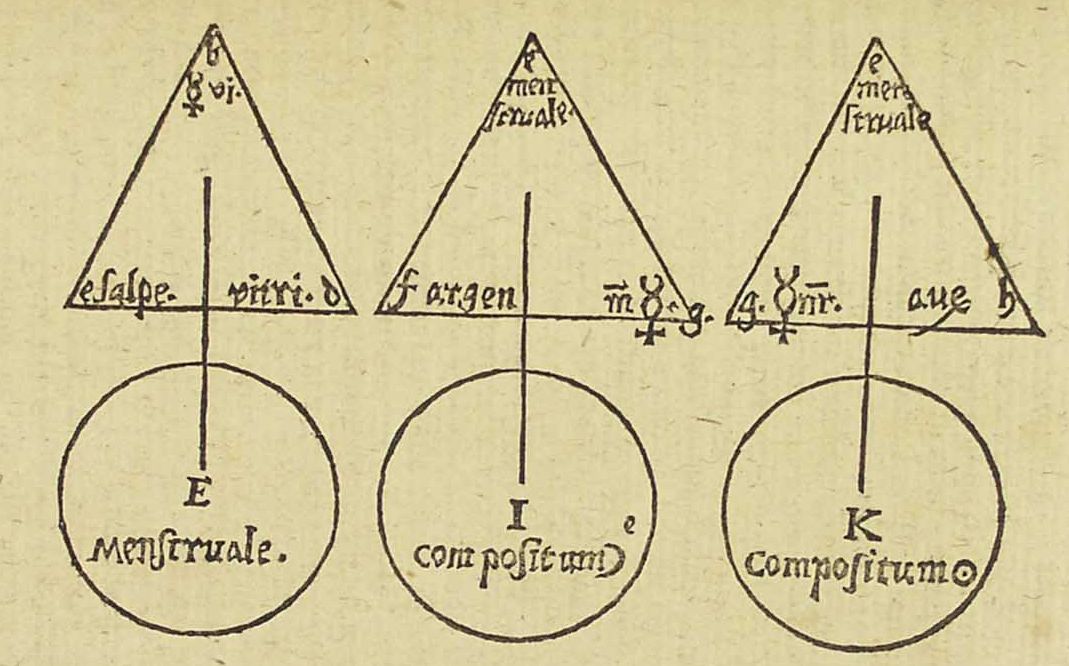 b
☿ vi.
eſalpe. vitri. d
E
Menſtruale.
e
men
ſtruale.
f argen m̄ ☿. g.
I
compoſitum ☽ e
e
men
ſtruale
g. ☿ nr̄. aue h
K
Compoſitum ☉